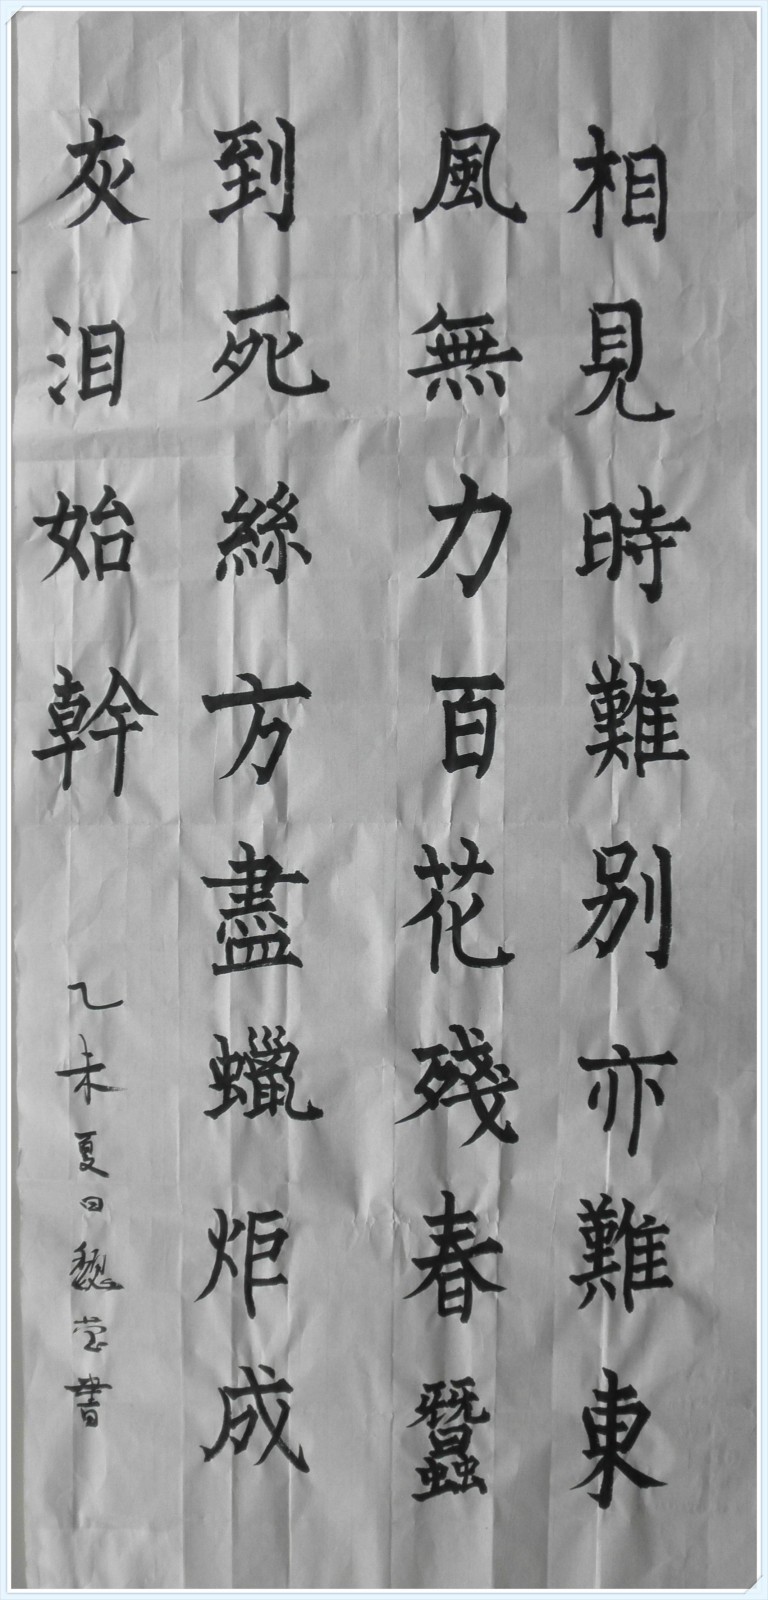 相見時難别亦難東
風無力百花殘春蠶
到死絲方盡蠟炬成
灰泪始幹
乙未夏日魏莹書